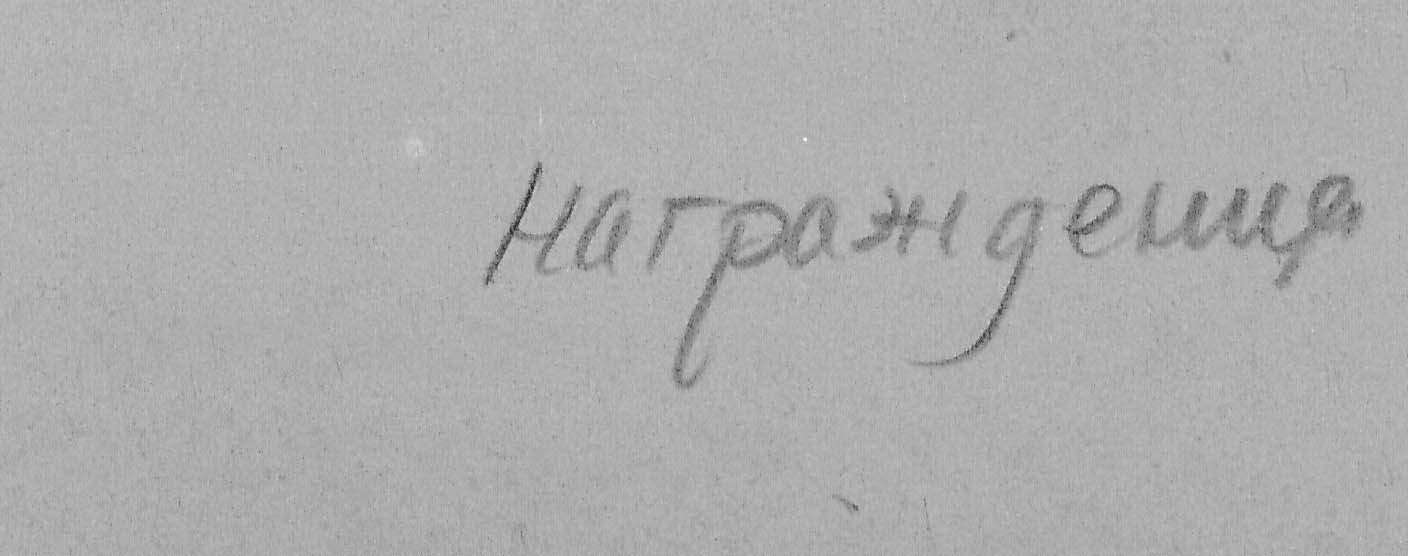 Награжденица